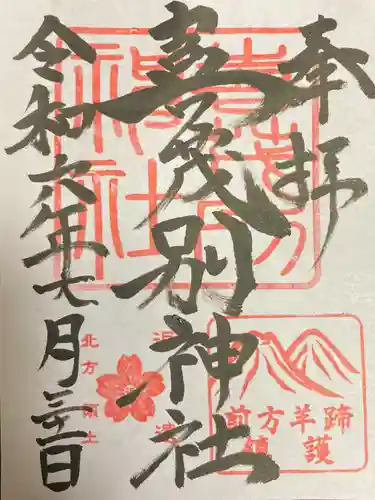 奉拝
喜茂別神社
令和六年七月三十一日
北方領土
前方羊蹄
鎮護